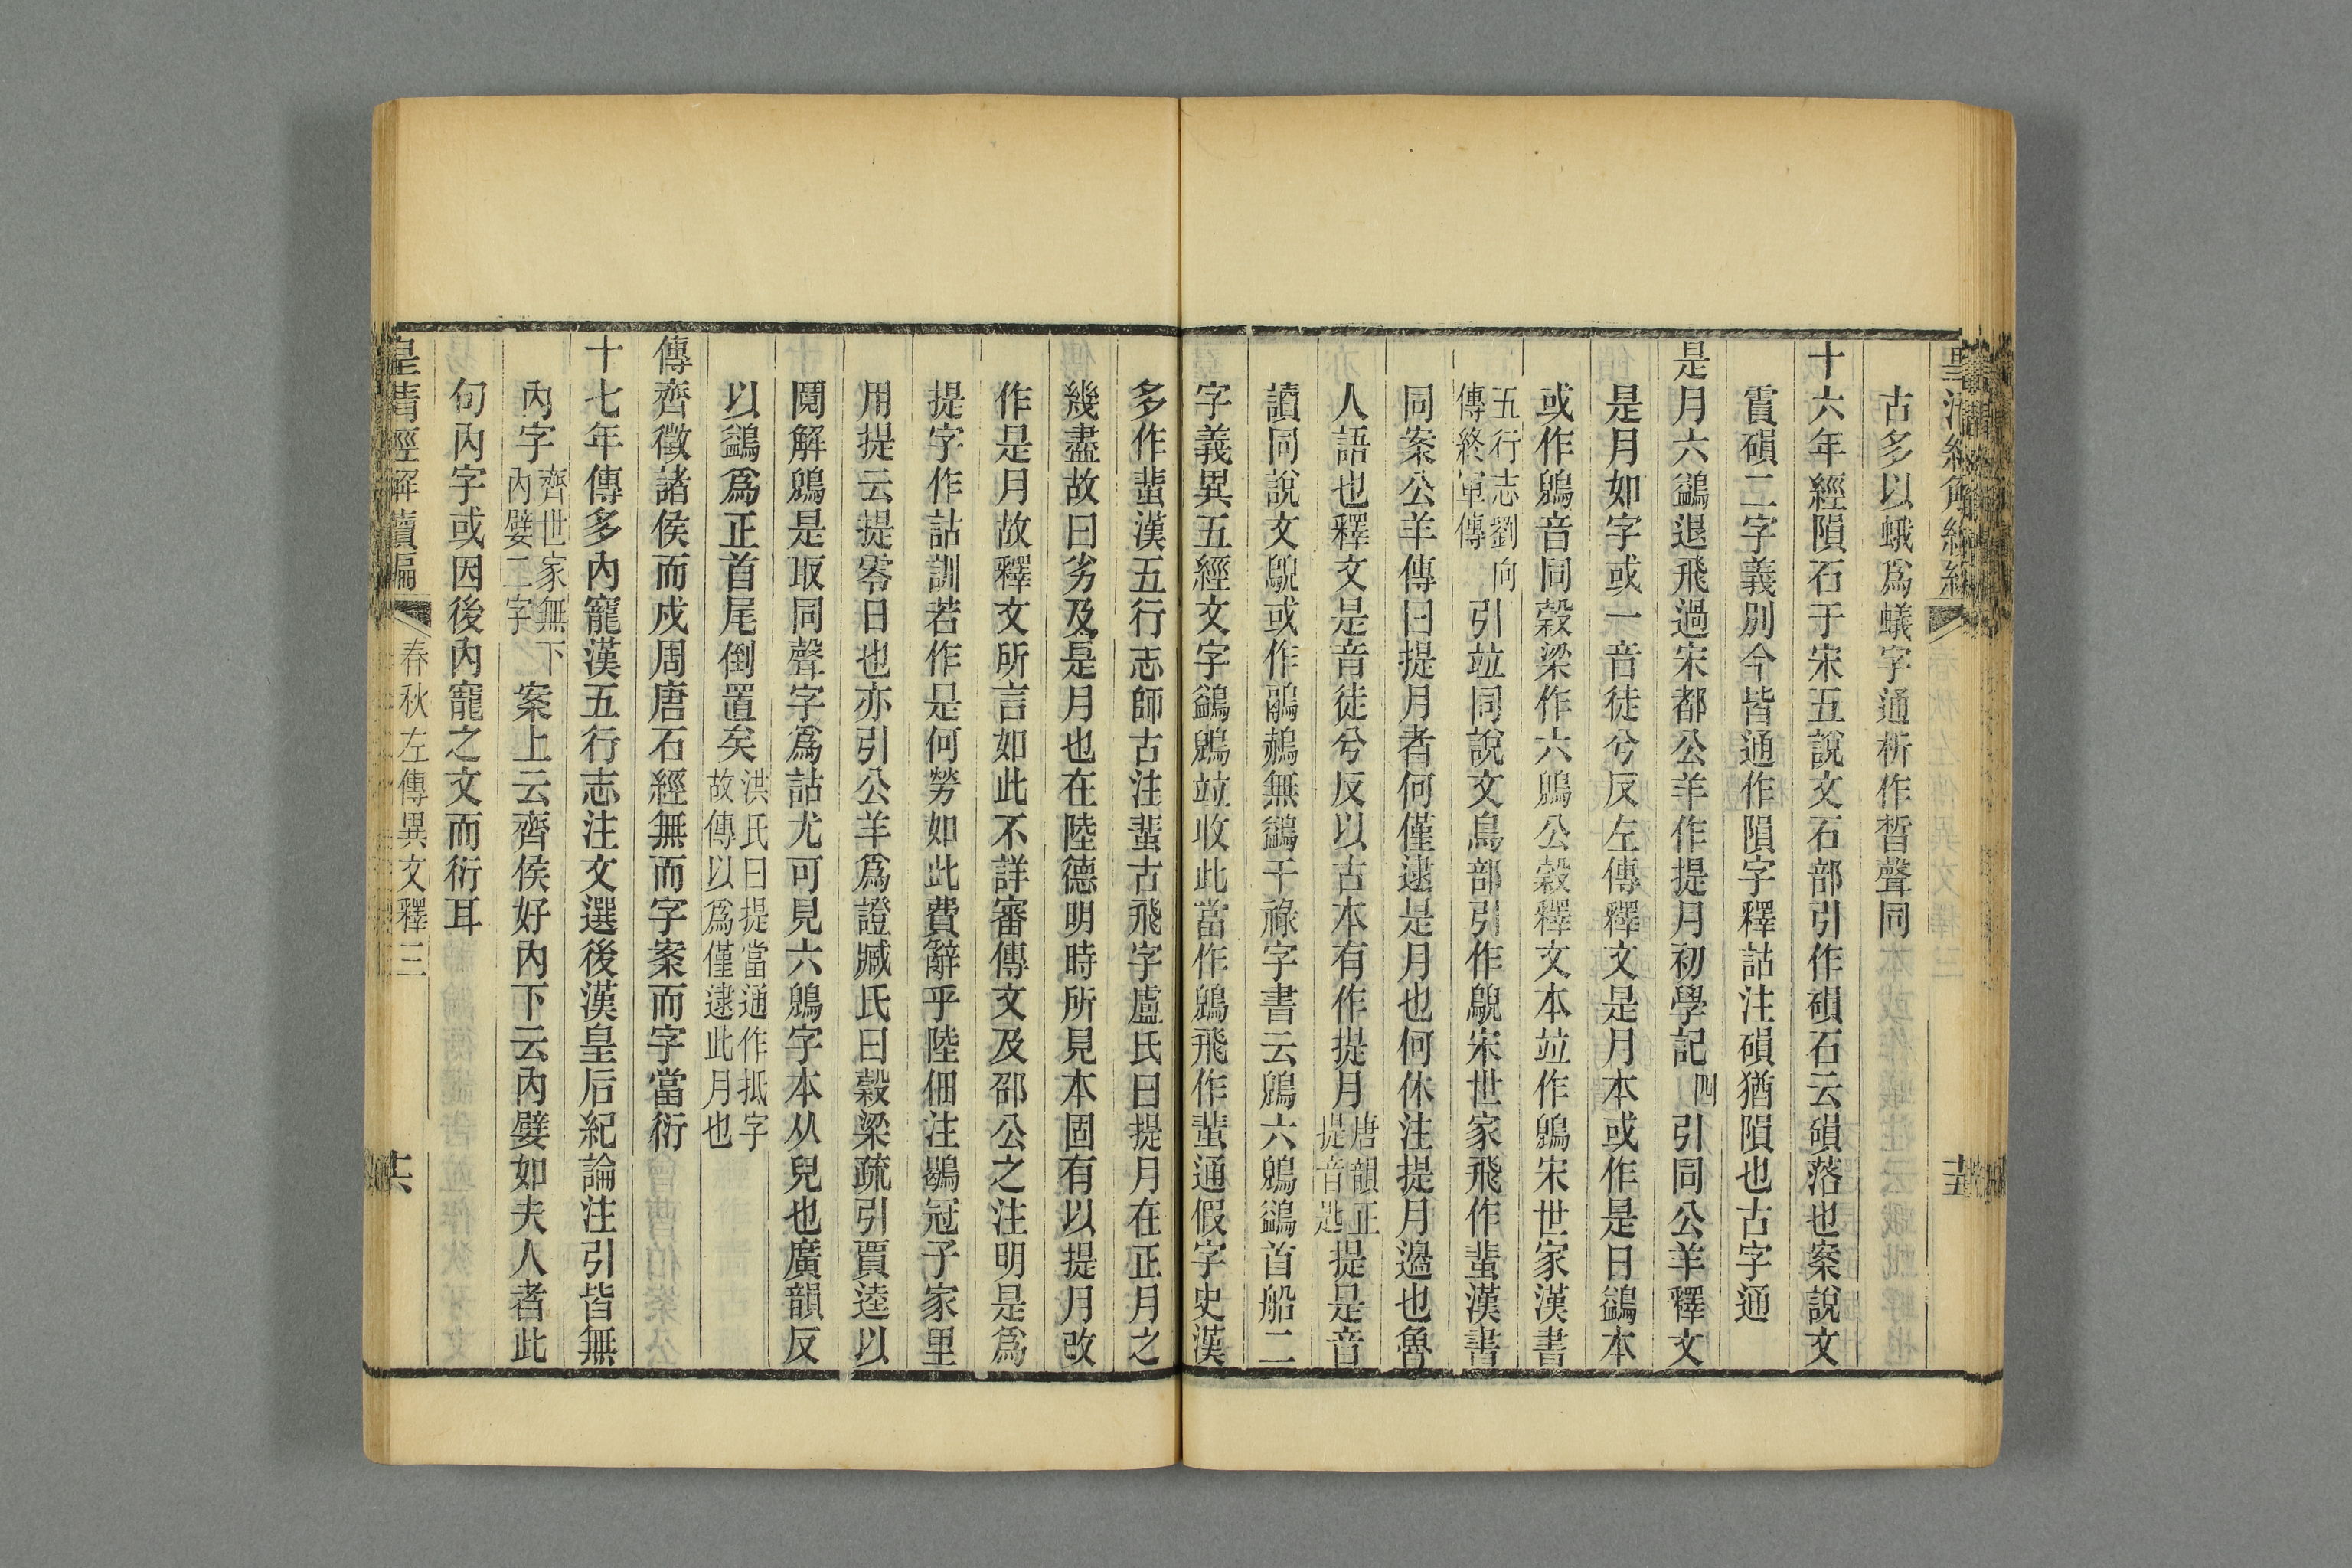 古多以蛾爲蟻字通析作晳聲同
十六年經隕石于宋五說文石部引作磒石云磒落也案說文
霣磒二字義別今皆通作隕字釋詁注磒猶隕也古字通
是月六鷁退飛過宋都公羊作提月初學記四引同公羊釋文
是月如字或一音徒兮反左傳釋文是月本或作是日鷁本
或作鶂音同穀梁作六鶂公穀釋文本竝作鶂宋世家漢書
五行志劉向傳終軍傳引竝同說文鳥部引作鶃宋世家飛作蜚漢書
同案公羊傳曰提月者何僅逮是月也何休注提月邊也魯
人語也釋文是音徒兮反以古本有作提月唐韻正提音匙提是音
讀同說文鶃或作鷊䴊無鷁干祿字書云鶂六鶂鷁首船二
字義異五經文字鷁鶂竝收此當作鶂飛作蜚通假字史漢
多作蜚漢五行志師古注蜚古飛字盧氏曰提月在正月之
幾盡故曰劣及是月也在陸德明時所見本固有以提月改
作是月故釋文所言如此不詳審傳文及邵公之注明是爲
提字作詁訓若作是何勞如此費辭乎陸佃注鶡冠子家里
用提云提零日也亦引公羊爲證臧氏曰穀梁疏引賈逵以
鬩解鶂是取同聲字爲詁尤可見六鶂字本从兒也廣韻反
以鷁爲正首尾倒置矣洪氏曰提當通作抵字故傳以爲僅逮此月也
傳齊徵諸侯而戍周唐石經無而字案而字當衍
十七年傳多內寵漢五行志注文選後漢皇后紀論注引皆無
內字齊世家無下內嬖二字案上云齊侯好內下云內嬖如夫人者此
句內字或因後內寵之文而衍耳
皇清經解續編
春秋左傳異文釋三
十六